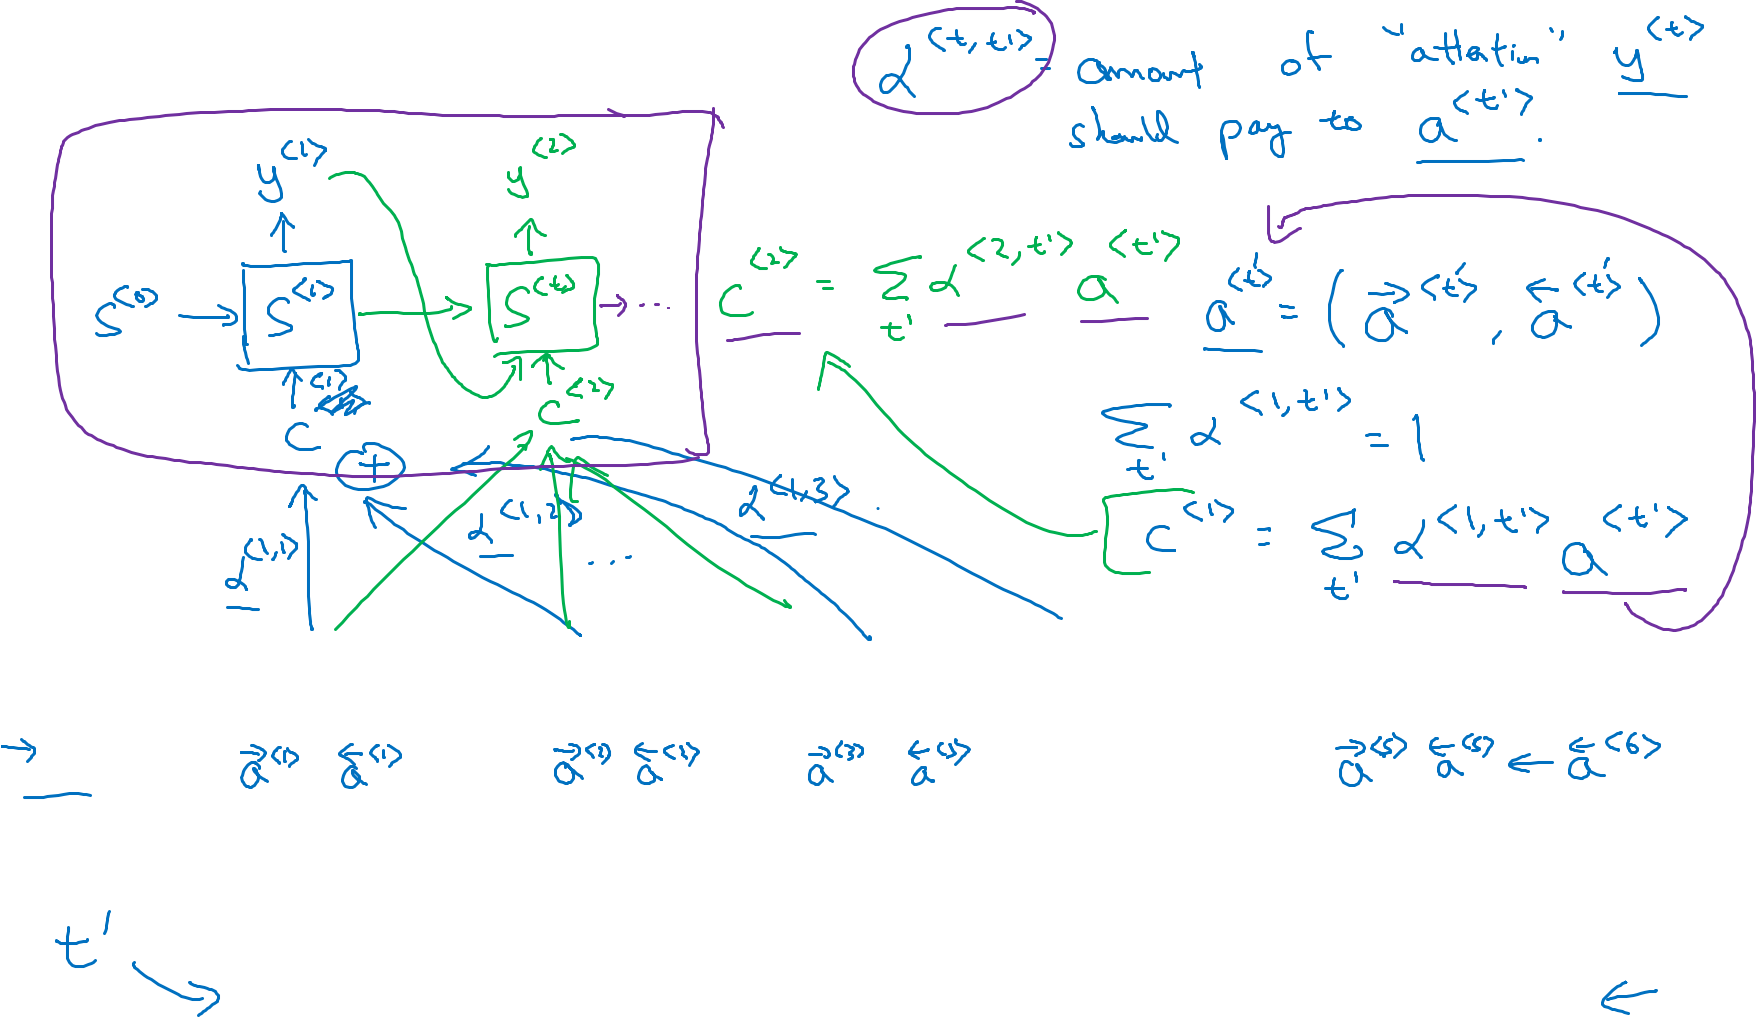 α^<t,t'> = amount of "attention" y^<t>
should pay to a^<t'>.
y^<1> y^<2>
S^<0> → S^<1> → S^<t> → ...
C^<1> C^<2>
+
α^<1,1> α^<1,2> ... α^<1,3> .
C^<2> = Σ_t' α^<2,t'> a^<t'>
a^<t'> = (a→^<t'>, a←^<t'>)
Σ_t' α^<1,t'> = 1
C^<1> = Σ_t' α^<1,t'> a^<t'>
→ a→^<1> a←^<1> a→^<2> a←^<2> a→^<3> a←^<3> a→^<5> a←^<5> ← a←^<6>
t'